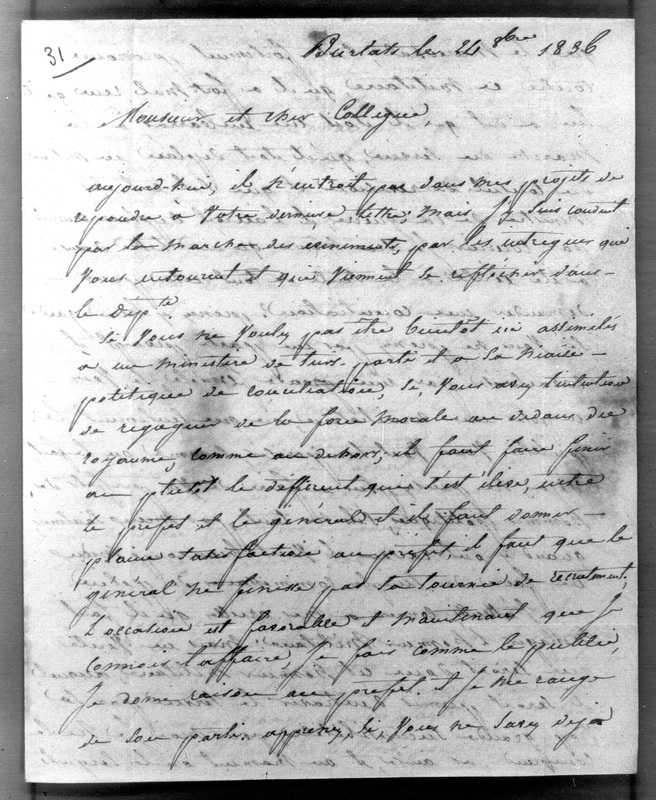 31
le 24 8bre 1836
Monsieur et cher Collegue,
aujourd-hui, il n'entroit pas dans mes projets de
repondre à Votre derniere lettre; mais J'y suis conduit
par la marche des evenements, par les intrigues qui
Vous entourent et qui viennent se reflecher dans
le Depte.
Si Vous ne Voulez pas être bientôt assimilés
à un ministere de tiers-parti et à sa niaise
politique de conciliation, Si, Vous avez l'intention
de regagner de la force morale au dedans du
royaume, comme au dehors, il faut faire finir
au plutôt le différent qui s'est élevé, entre
le préfet et le général et il faut donner
pleine satisfaction au préfet, il faut que le
général ne finisse pas sa tournée de recrutement.
L'occasion est favorable et maintenant que Je
connois l'affaire, Je fais comme le public,
Je donne raison au préfet. et Je me range
de son parti. apprenez, Si Vous ne Savez dejà